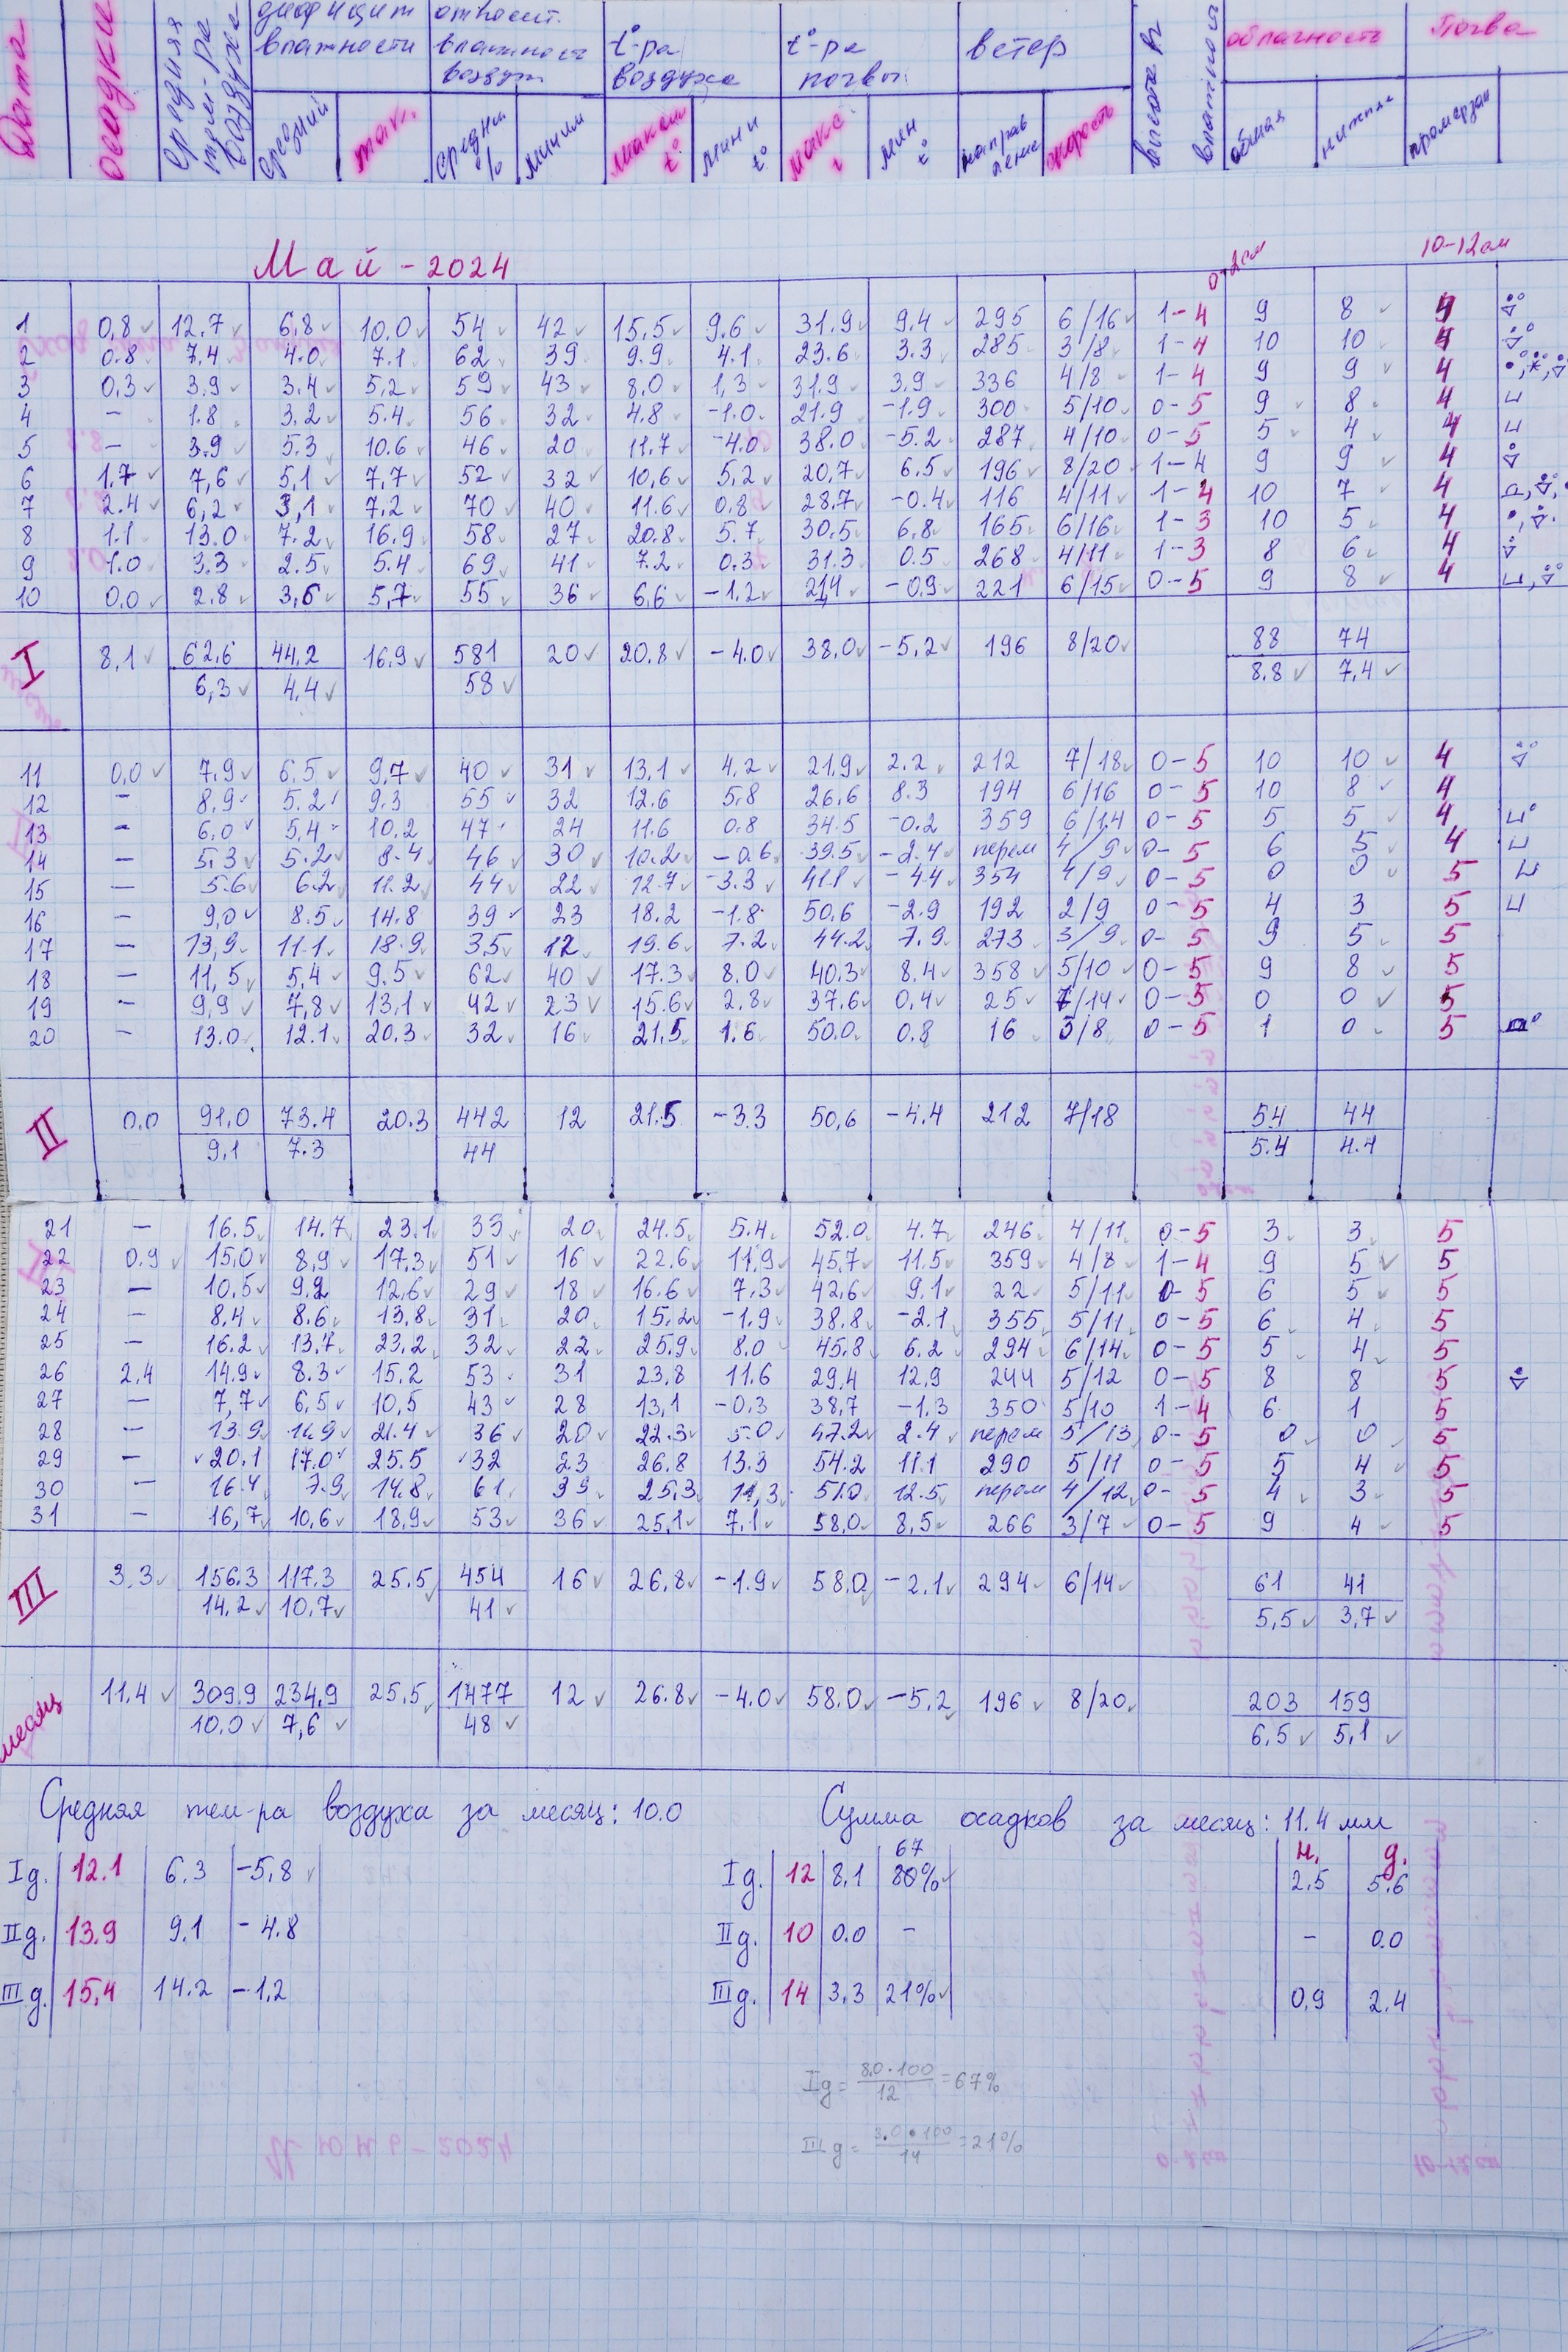 Дата осадки Средняя тем-ра воздуха дифицит влажности относит. влажность воздух t°-ра воздуха t°-ра почвы ветер высота облачность Почва
средний макс. средни % миним максим t° мини t° макс. мин t° направление скорость влажность общая нижняя промерзан
Май - 2024 0-2см 10-12см
1 0,8 12.7 6,8 10.0 54 42 15,5 9.6 31.9 9,4 295 6/16 1-4 9 8 4
2 0.8 7,4 4.0 7.1 62 39 9.9 4.1 23.6 3.3 285 3/8 1-4 10 10 4
3 0,3 3.9 3.4 5,2 59 43 8,0 1,3 31.9 3,9 336 4/8 1-4 9 9 4
4 - 1.8 3,2 5.4 56 32 4.8 -1.0 21.9 -1.9 300 5/10 0-5 9 8 4
5 - 3.9 5.3 10.6 46 20 11.7 -4.0 38.0 -5.2 287 4/10 0-5 5 4 4
6 1.7 7,6 5,1 7,7 52 32 10,6 5,2 20,7 6.5 196 8/20 1-4 9 9 4
7 2.4 6,2 3,1 7,2 70 40 11.6 0,8 28.7 -0.4 116 4/11 1-4 10 7 4
8 1.1 13.0 7.2 16.9 58 27 20.8 5.7 30.5 6,8 165 6/16 1-3 10 5 4
9 1.0 3.3 2.5 5.4 69 41 7.2 0.3 31.3 0.5 268 4/11 1-3 8 6 4
10 0,0 2.8 3,6 5,7 55 36 6,6 -1.2 21,4 -0,9 221 6/15 0-5 9 8 4
I 8,1 62,6 44,2 16,9 581 20 20,8 -4.0 38,0 -5,2 196 8/20 88 74
6,3 4.4 58 8.8 7,4
11 0,0 7,9 6.5 9,7 40 31 13,1 4,2 21.9 2.2 212 7/18 0-5 10 10 4
12 - 8,9 5.2 9,3 55 32 12.6 5,8 26,6 8.3 194 6/16 0-5 10 8 4
13 - 6,0 5,4 10.2 47 24 11.6 0.8 34.5 -0.2 359 6/14 0-5 5 5 4
14 - 5.3 5.2 8.4 46 30 10.2 -0.6 39.5 -2.4 перем 4/9 0-5 6 5 4
15 - 5.6 6.2 11.2 44 22 12.7 -3.3 41.1 -4.4 354 4/9 0-5 0 0 5
16 - 9,0 8.5 14.8 39 23 18.2 -1.8 50,6 -2.9 192 2/9 0-5 4 3 5
17 - 13,9 11.1 18.9 35 12 19.6 7.2 44.2 7.9 273 3/9 0-5 9 5 5
18 - 11,5 5,4 9.5 62 40 17.3 8.0 40.3 8,4 358 5/10 0-5 9 8 5
19 - 9,9 7,8 13,1 42 23 15.6 2.8 37.6 0,4 25 7/14 0-5 0 0 5
20 - 13.0 12.1 20.3 32 16 21,5 1.6 50.0 0.8 16 5/8 0-5 1 0 5
II 0,0 91,0 73.4 20.3 442 12 21.5 -3.3 50,6 -4.4 212 7/18 54 44
9,1 7.3 44 5.4 4.4
21 - 16.5 14.7 23.1 33 20 24.5 5.4 52.0 4.7 246 4/11 0-5 3 3 5
22 0.9 15,0 8,9 17,3 51 16 22.6 11,9 45,7 11.5 359 4/8 1-4 9 5 5
23 - 10,5 9,2 12,6 29 18 16.6 7,3 42,6 9,1 22 5/11 0-5 6 5 5
24 - 8,4 8.6 13,8 31 20 15,2 -1.9 38.8 -2.1 355 5/11 0-5 6 4 5
25 - 16.2 13,7 23,2 32 22 25.9 8.0 45.8 6.2 294 6/14 0-5 5 4 5
26 2,4 14,9 8.3 15,2 53 31 23,8 11.6 29,4 12,9 244 5/12 0-5 8 8 5
27 - 7,7 6,5 10,5 43 28 13,1 -0,3 38,7 -1,3 350 5/10 1-4 6 1 5
28 - 13.9 11.9 21.4 36 20 22.3 5.0 47.2 2.4 перем 5/13 0-5 0 0 5
29 - 20.1 17.0 25.5 32 23 26.8 13.3 54.2 11.1 290 5/11 0-5 5 4 5
30 - 16.4 7.9 14.8 61 39 25,3 11,3 51.0 12.5 перем 4/12 0-5 4 3 5
31 - 16,7 10,6 18,9 53 36 25,1 7,1 58,0 8,5 266 3/7 0-5 9 4 5
III 3,3 156.3 117.3 25.5 454 16 26,8 -1.9 58.0 -2.1 294 6/14 61 41
14,2 10,7 41 5,5 3,7
месяц 11,4 309.9 234,9 25,5 1477 12 26.8 -4.0 58.0 -5,2 196 8/20 203 159
10,0 7,6 48 6,5 5,1
Средняя тем-ра воздуха за месяц: 10.0 Сумма осадков за месяц: 11.4 мм
67 н. д.
I д. 12.1 6.3 -5,8 I д. 12 8,1 80% 2,5 5,6
II д. 13.9 9.1 -4.8 II д. 10 0.0 - - 0.0
III д. 15,4 14.2 -1,2 III д. 14 3,3 21% 0,9 2.4
I д = 8,0·100 / 12 = 67%
III д = 3.0·100 / 14 = 21%